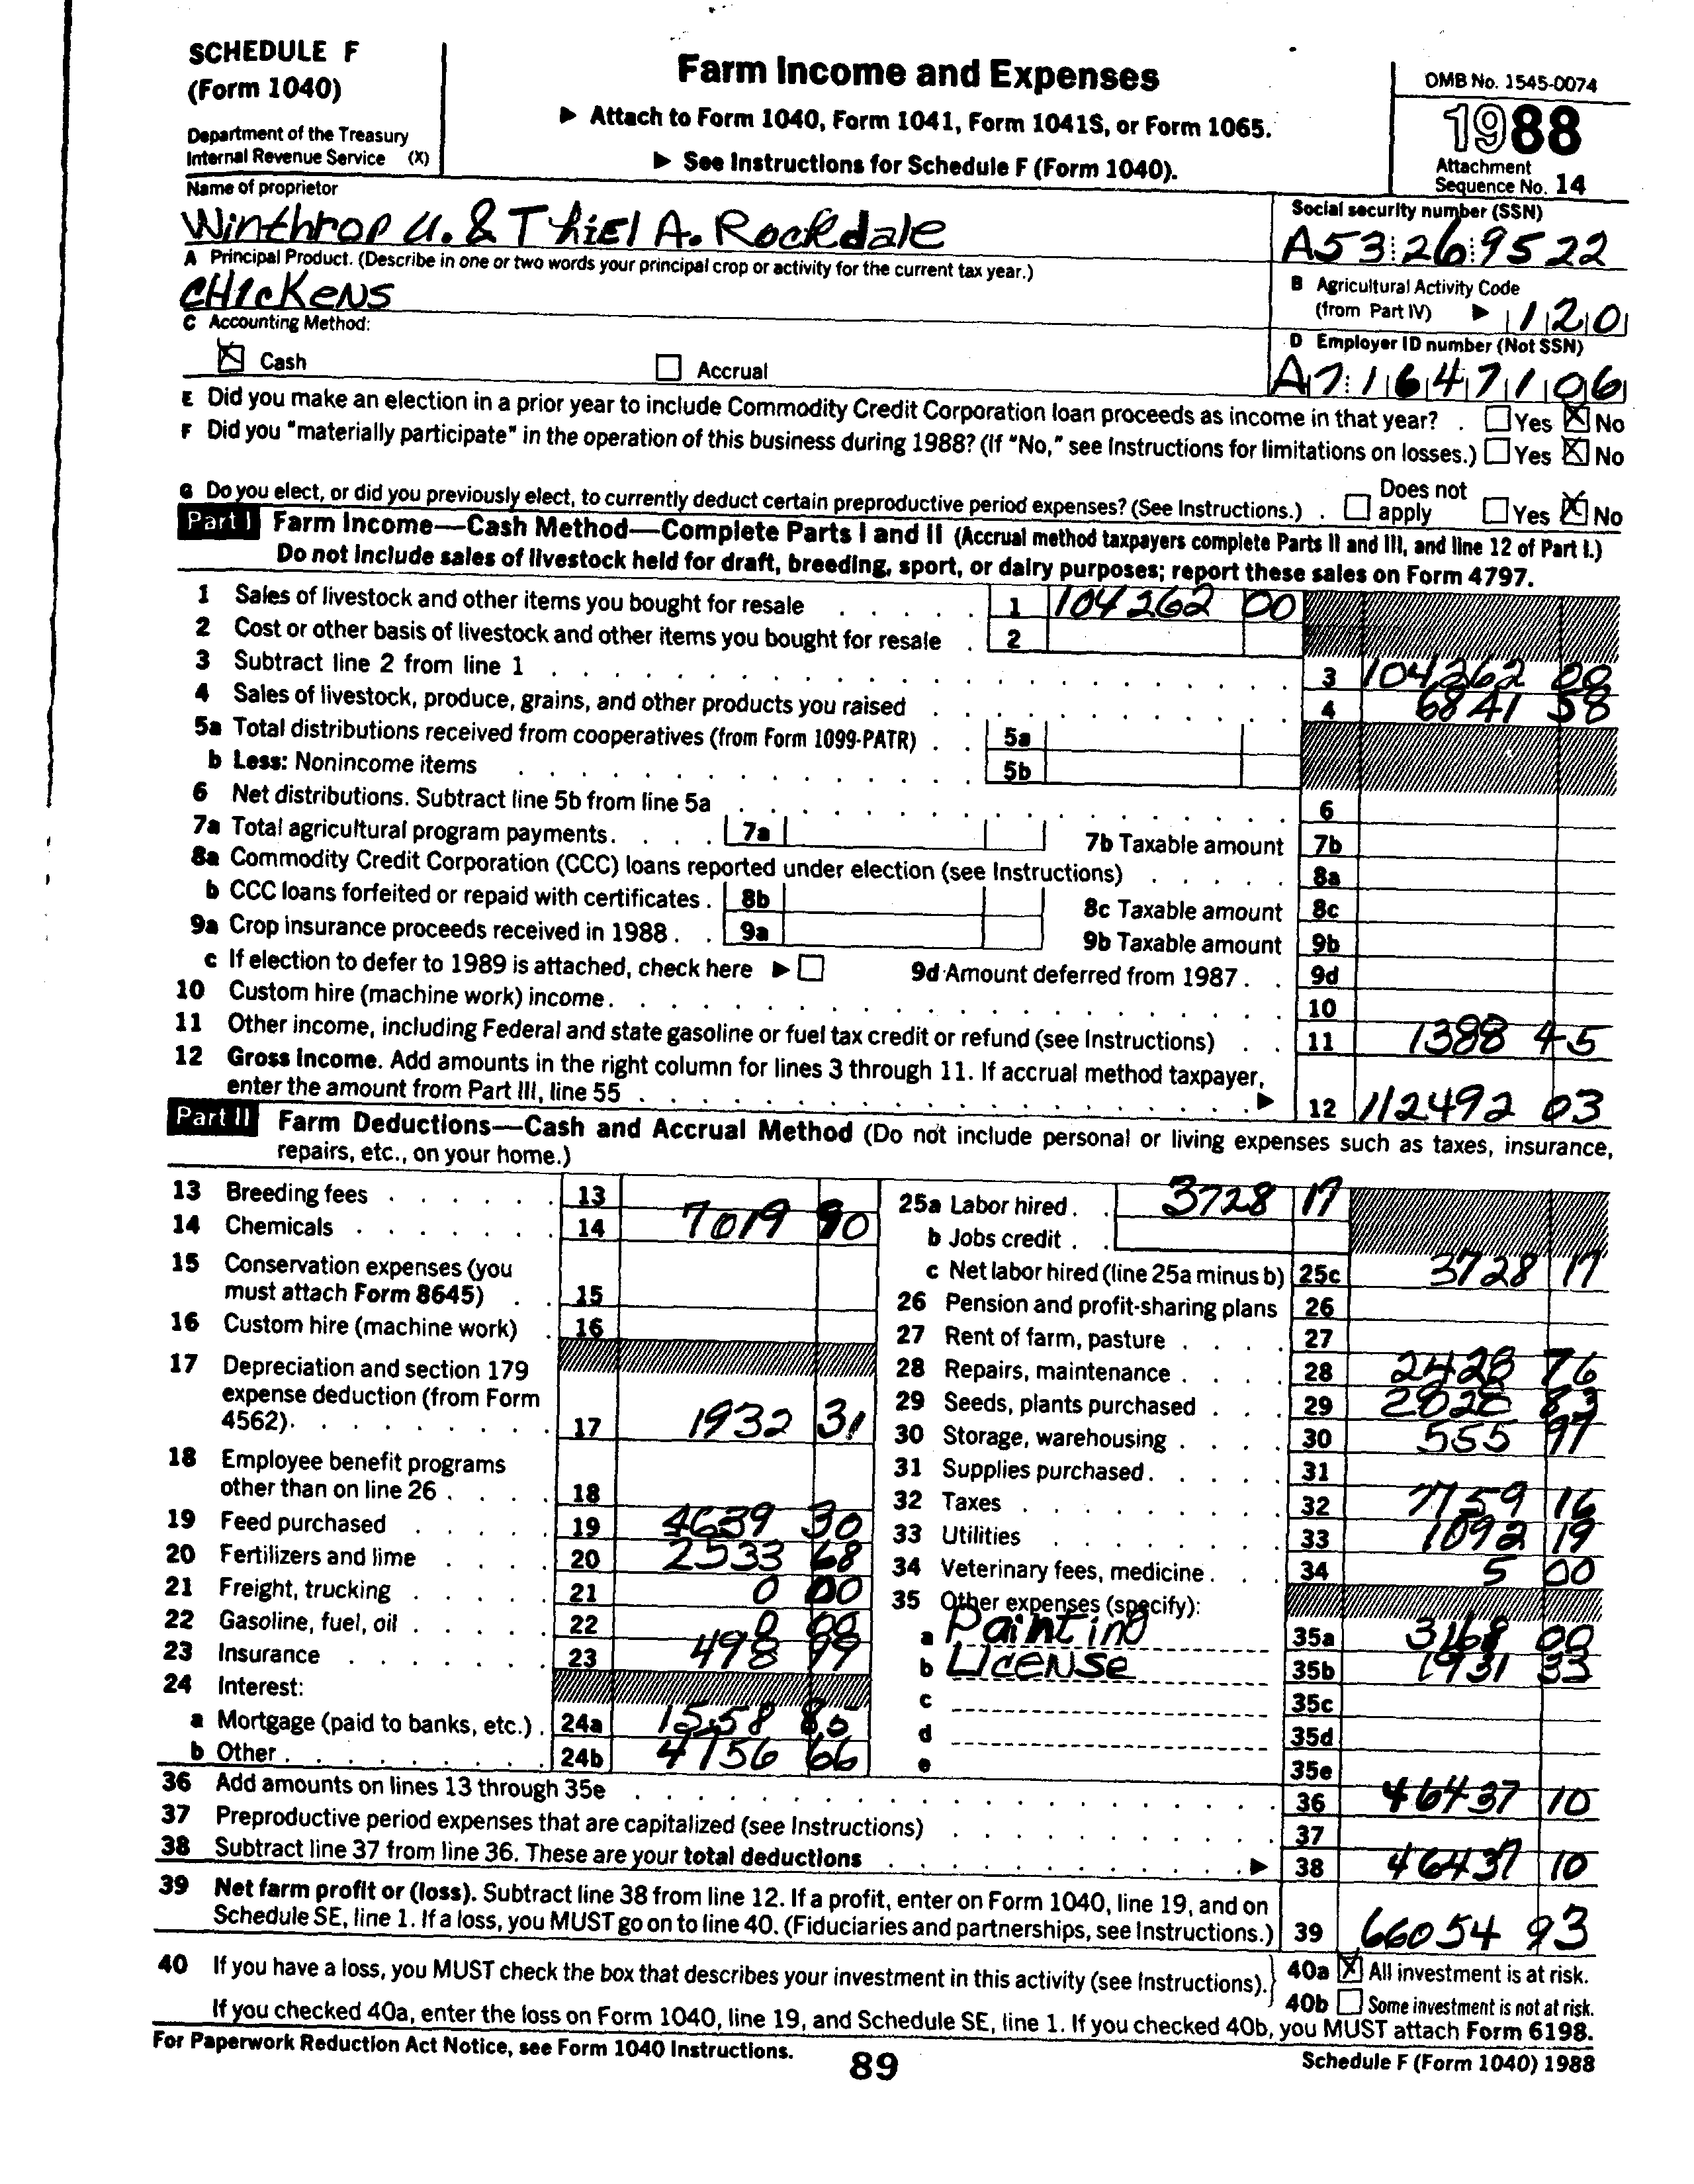 SCHEDULE F
(Form 1040)
Department of the Treasury
Internal Revenue Service (X)
Farm Income and Expenses
▶ Attach to Form 1040, Form 1041, Form 1041S, or Form 1065.
▶ See Instructions for Schedule F (Form 1040).
OMB No. 1545-0074
1988
Attachment
Sequence No. 14
Name of proprietor
Winthrop U. & Thiel A. Rockdale
Social security number (SSN)
A53 26 9522
A Principal Product. (Describe in one or two words your principal crop or activity for the current tax year.)
CHICKENS
B Agricultural Activity Code
(from Part IV) ▶ 120
C Accounting Method:
Cash
Accrual
D Employer ID number (Not SSN)
A7 1647106
E Did you make an election in a prior year to include Commodity Credit Corporation loan proceeds as income in that year? . Yes No
F Did you "materially participate" in the operation of this business during 1988? (If "No," see Instructions for limitations on losses.) Yes No
G Do you elect, or did you previously elect, to currently deduct certain preproductive period expenses? (See Instructions.) . Does not apply Yes No
Part I Farm Income—Cash Method—Complete Parts I and II (Accrual method taxpayers complete Parts II and III, and line 12 of Part I.)
Do not include sales of livestock held for draft, breeding, sport, or dairy purposes; report these sales on Form 4797.
1 Sales of livestock and other items you bought for resale 1 104262 00
2 Cost or other basis of livestock and other items you bought for resale 2
3 Subtract line 2 from line 1 3 104262 00
4 Sales of livestock, produce, grains, and other products you raised 4 6841 58
5a Total distributions received from cooperatives (from Form 1099-PATR) 5a
b Less: Nonincome items 5b
6 Net distributions. Subtract line 5b from line 5a 6
7a Total agricultural program payments. 7a 7b Taxable amount 7b
8a Commodity Credit Corporation (CCC) loans reported under election (see Instructions) 8a
b CCC loans forfeited or repaid with certificates. 8b 8c Taxable amount 8c
9a Crop insurance proceeds received in 1988. 9a 9b Taxable amount 9b
c If election to defer to 1989 is attached, check here ▶ 9d Amount deferred from 1987. 9d
10 Custom hire (machine work) income. 10
11 Other income, including Federal and state gasoline or fuel tax credit or refund (see Instructions) 11 1388 45
12 Gross income. Add amounts in the right column for lines 3 through 11. If accrual method taxpayer,
enter the amount from Part III, line 55 ▶ 12 112492 03
Part II Farm Deductions—Cash and Accrual Method (Do not include personal or living expenses such as taxes, insurance,
repairs, etc., on your home.)
13 Breeding fees 13
14 Chemicals 14 7019 90
15 Conservation expenses (you
must attach Form 8645) 15
16 Custom hire (machine work) 16
17 Depreciation and section 179
expense deduction (from Form
4562). 17 1932 31
18 Employee benefit programs
other than on line 26 18
19 Feed purchased 19 4639 30
20 Fertilizers and lime 20 2533 68
21 Freight, trucking 21 0 00
22 Gasoline, fuel, oil 22 0 00
23 Insurance 23 498 99
24 Interest:
a Mortgage (paid to banks, etc.) 24a 1558 85
b Other 24b 4756 66
25a Labor hired. 3728 17
b Jobs credit
c Net labor hired (line 25a minus b) 25c 3728 17
26 Pension and profit-sharing plans 26
27 Rent of farm, pasture 27
28 Repairs, maintenance 28 2428 76
29 Seeds, plants purchased 29 2828 83
30 Storage, warehousing 30 555 97
31 Supplies purchased. 31
32 Taxes 32 7759 16
33 Utilities 33 1092 19
34 Veterinary fees, medicine. 34 5 00
35 Other expenses (specify):
a Painting 35a 3168 00
b License 35b 1931 33
c 35c
d 35d
e 35e
36 Add amounts on lines 13 through 35e 36 46437 10
37 Preproductive period expenses that are capitalized (see Instructions) 37
38 Subtract line 37 from line 36. These are your total deductions ▶ 38 46437 10
39 Net farm profit or (loss). Subtract line 38 from line 12. If a profit, enter on Form 1040, line 19, and on
Schedule SE, line 1. If a loss, you MUST go on to line 40. (Fiduciaries and partnerships, see Instructions.) 39 66054 93
40 If you have a loss, you MUST check the box that describes your investment in this activity (see Instructions). 40a All investment is at risk.
40b Some investment is not at risk.
If you checked 40a, enter the loss on Form 1040, line 19, and Schedule SE, line 1. If you checked 40b, you MUST attach Form 6198.
For Paperwork Reduction Act Notice, see Form 1040 Instructions.
89
Schedule F (Form 1040) 1988